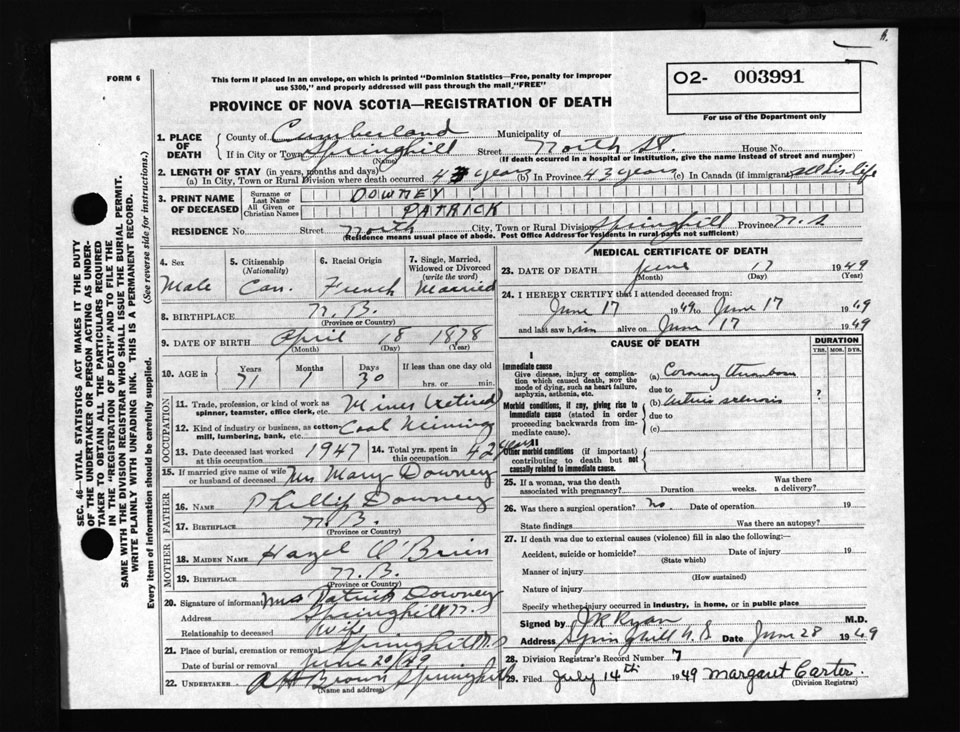 FORM 6
This form if placed in an envelope, on which is printed "Dominion Statistics—Free, penalty for improper
use $300," and properly addressed will pass through the mail, "FREE"
PROVINCE OF NOVA SCOTIA—REGISTRATION OF DEATH
O2- 003991
For use of the Department only
SEC. 46—VITAL STATISTICS ACT MAKES IT THE DUTY
OF THE UNDERTAKER OR PERSON ACTING AS UNDER-
TAKER TO OBTAIN ALL THE PARTICULARS REQUIRED
IN THE "REGISTRATION OF DEATH" AND TO FILE THE
SAME WITH THE DIVISION REGISTRAR WHO SHALL ISSUE THE BURIAL PERMIT.
WRITE PLAINLY WITH UNFADING INK. THIS IS A PERMANENT RECORD.
Every item of information should be carefully supplied. (See reverse side for instructions.)
1. PLACE OF DEATH County of Cumberland Municipality of
If in City or Town Springhill Street North St. House No.
(Name) (If death occurred in a hospital or institution, give the name instead of street and number)
2. LENGTH OF STAY (in years, months and days)
(a) In City, Town or Rural Division where death occurred 43 years (b) In Province 43 years (c) In Canada (if immigrant) all his life
3. PRINT NAME OF DECEASED Surname or Last Name DOWNEY
All Given or Christian Names PATRICK
RESIDENCE No. Street North City, Town or Rural Division Springhill Province N.S
(Residence means usual place of abode. Post Office Address for residents in rural parts not sufficient)
4. Sex 5. Citizenship (Nationality) 6. Racial Origin 7. Single, Married, Widowed or Divorced (write the word)
Male Can. French Married
8. BIRTHPLACE N.B.
(Province or Country)
9. DATE OF BIRTH April 18 1878
(Month) (Day) (Year)
10. AGE in Years Months Days If less than one day old
71 1 30 hrs. or min.
OCCUPATION
11. Trade, profession, or kind of work as spinner, teamster, office clerk, etc. Miner (retired)
12. Kind of industry or business, as cotton-mill, lumbering, bank, etc. Coal Mining
13. Date deceased last worked at this occupation 1947 14. Total yrs. spent in this occupation 42 years
15. If married give name of wife or husband of deceased Mrs Mary Downey
FATHER
16. NAME Phillip Downey
17. BIRTHPLACE N.B.
(Province or Country)
MOTHER
18. MAIDEN NAME Hazel O'Brien
19. BIRTHPLACE N.B.
(Province or Country)
20. Signature of informant Mrs Patrick Downey
Address Springhill N.S
Relationship to deceased Wife
21. Place of burial, cremation or removal Springhill N.S
Date of burial or removal June 20/49
22. UNDERTAKER A H Brown Springhill
(Name and address)
MEDICAL CERTIFICATE OF DEATH
23. DATE OF DEATH June 17 1949
(Month) (Day) (Year)
24. I HEREBY CERTIFY that I attended deceased from:
June 17 1949 to June 17 1949
and last saw him alive on June 17 1949
CAUSE OF DEATH DURATION
YRS. MOS. DYS.
I
Immediate cause
Give disease, injury or complication which caused death, NOT the mode of dying, such as heart failure, asphyxia, asthenia, etc.
(a) Coronary thrombosis
due to
Morbid conditions, if any, giving rise to immediate cause (stated in order proceeding backwards from immediate cause).
(b) Arterio sclerosis ?
due to
(c)
II
Other morbid conditions (if important) contributing to death but not causally related to immediate cause.
25. If a woman, was the death associated with pregnancy? Duration weeks. Was there a delivery?
26. Was there a surgical operation? no. Date of operation 19
State findings Was there an autopsy?
27. If death was due to external causes (violence) fill in also the following:—
Accident, suicide or homicide? Date of injury 19
(State which)
Manner of injury
(How sustained)
Nature of injury
Specify whether injury occurred in industry, in home, or in public place
Signed by J R Ryan M.D.
Address Springhill N.S. Date June 28 1949
28. Division Registrar's Record Number 7
29. Filed July 14th 1949 Margaret Carter
(Division Registrar)